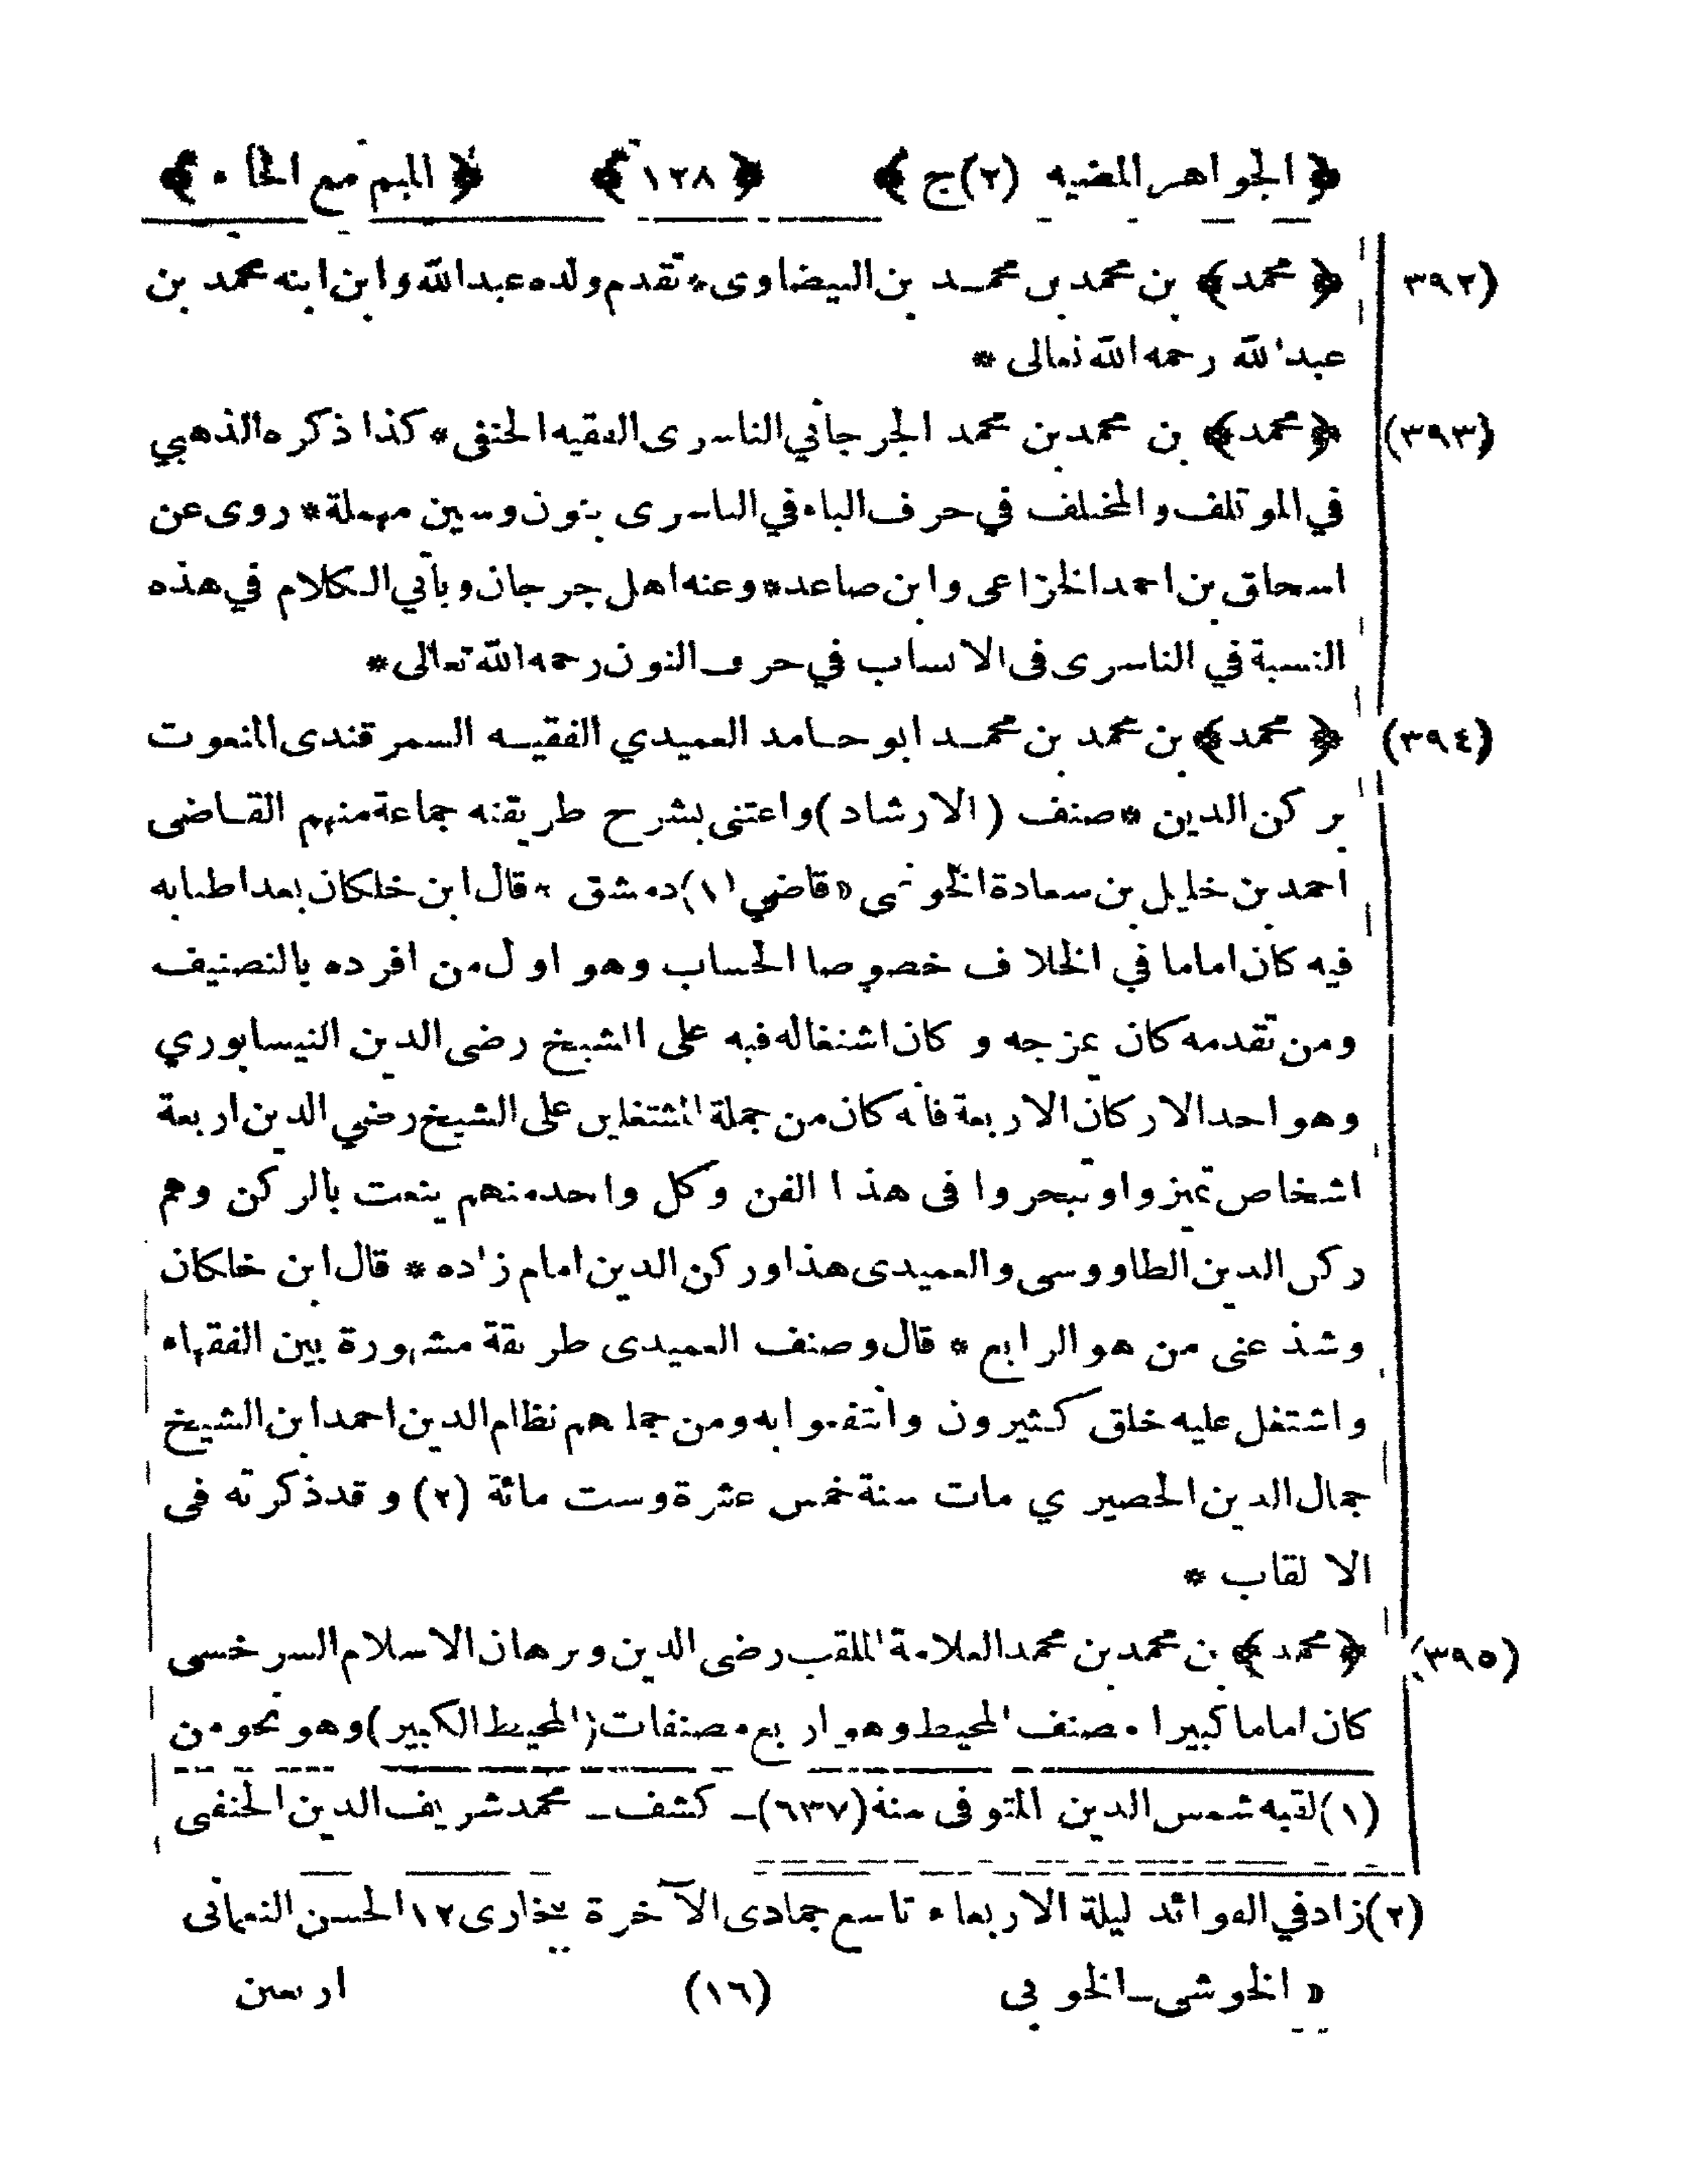 ﴿ الجواهر المضيه (٢) ج ﴾ ﴿ ١٢٨ ﴾ ﴿ الميم مع الحاء ﴾
(٣٩٢) ﴿ محمد ﴾ بن محمد بن محمد بن البيضاوى * تقدم ولده عبد الله وابن ابنه محمد بن
عبد الله رحمه الله تعالى *
(٣٩٣) ﴿ محمد ﴾ بن محمد بن محمد الجرجاني الناسرى الفقيه الحنفى * كذا ذكره الذهبي
في الموتلف والمختلف في حرف الباء في الناسرى بنون وسين مهملة * روى عن
اسحاق بن احمد الخزاعى وابن صاعد * وعنه اهل جرجان ويأتي الكلام في هذه
النسبة في الناسرى فى الانساب في حرف النون رحمه الله تعالى *
(٣٩٤) ﴿ محمد ﴾ بن محمد بن محمد ابو حامد العميدي الفقيه السمرقندى المنعوت
بركن الدين * صنف (الارشاد) واعتنى بشرح طريقته جماعة منهم القاضى
احمد بن خليل بن سعادة قاضي (١) دمشق * قال ابن خلكان بعد اطنابه
فيه كان اماما في الخلاف خصوصا الحساب وهو اول من افرده بالتصنيف
ومن تقدمه كان يمزجه و كان اشتغاله فيه على الشيخ رضى الدين النيسابوري
وهو احد الاركان الاربعة فانه كان من جملة المشتغلين على الشيخ رضي الدين اربعة
اشخاص تميزوا وتبحروا فى هذا الفن وكل واحد منهم ينعت بالركن وهم
ركن الدين الطاووسى والعميدى هذا وركن الدين امام زاده * قال ابن خلكان
وشذ عنى من هو الرابع * قال وصنف العميدى طريقة مشهورة بين الفقهاء
واشتغل عليه خلق كثيرون وانتفعوا به ومن جملتهم نظام الدين احمد ابن الشيخ
جمال الدين الحصيري مات سنة خمس عشرة وست مائة (٢) و قد ذكرته فى
الالقاب *
(٣٩٥) ﴿ محمد ﴾ بن محمد بن محمد العلامة الملقب رضى الدين وبرهان الاسلام السرخسى
كان اماما كبيرا * صنف المحيط وهو اربع مصنفات (المحيط الكبير) وهو نحو من
(١) لقبه شمس الدين المتوفى سنة (٦٣٧) ـ كشف ـ محمد شريف الدين الحنفى
(٢) زاد في الفوائد ليلة الاربعاء تاسع جمادى الآخرة ببخارى ١٢ الحسن النعمانى
الخوشى ـ الخوبى (١٦) اربعين